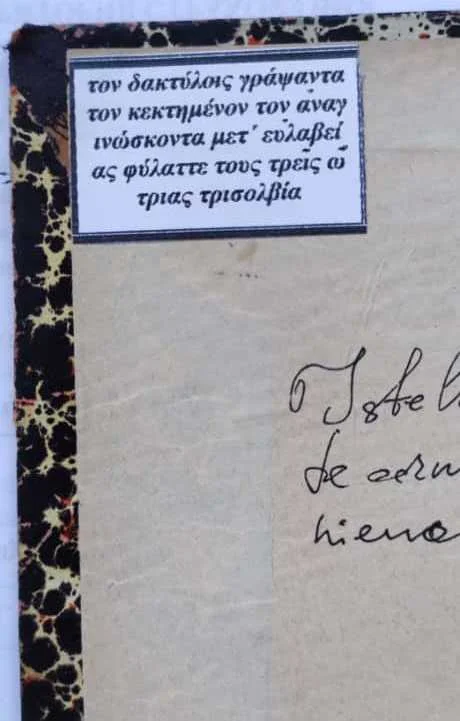 τον δακτύλοις γράψαντα
τον κεκτημένον τον ἀναγ
ινώσκοντα μετ᾽ ευλαβεί
ας φύλαττε τους τρεῖς ὦ
τριας τρισολβία
Iste
te